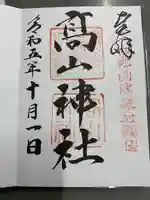 奉拝
髙山神社
令和五年十月一日